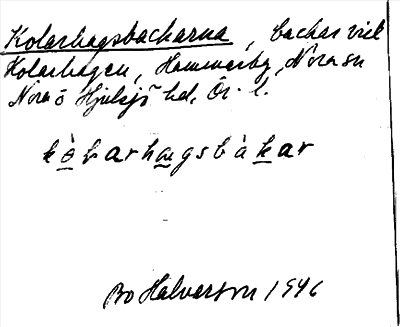 Kolarhagsbackarna, backar vid
Kolarhagen, Hammarby, Nora sn
Nora o Hjulsjö hd, Ör. l.
kòlarhagsbàkar
Bo Halvarson 1946